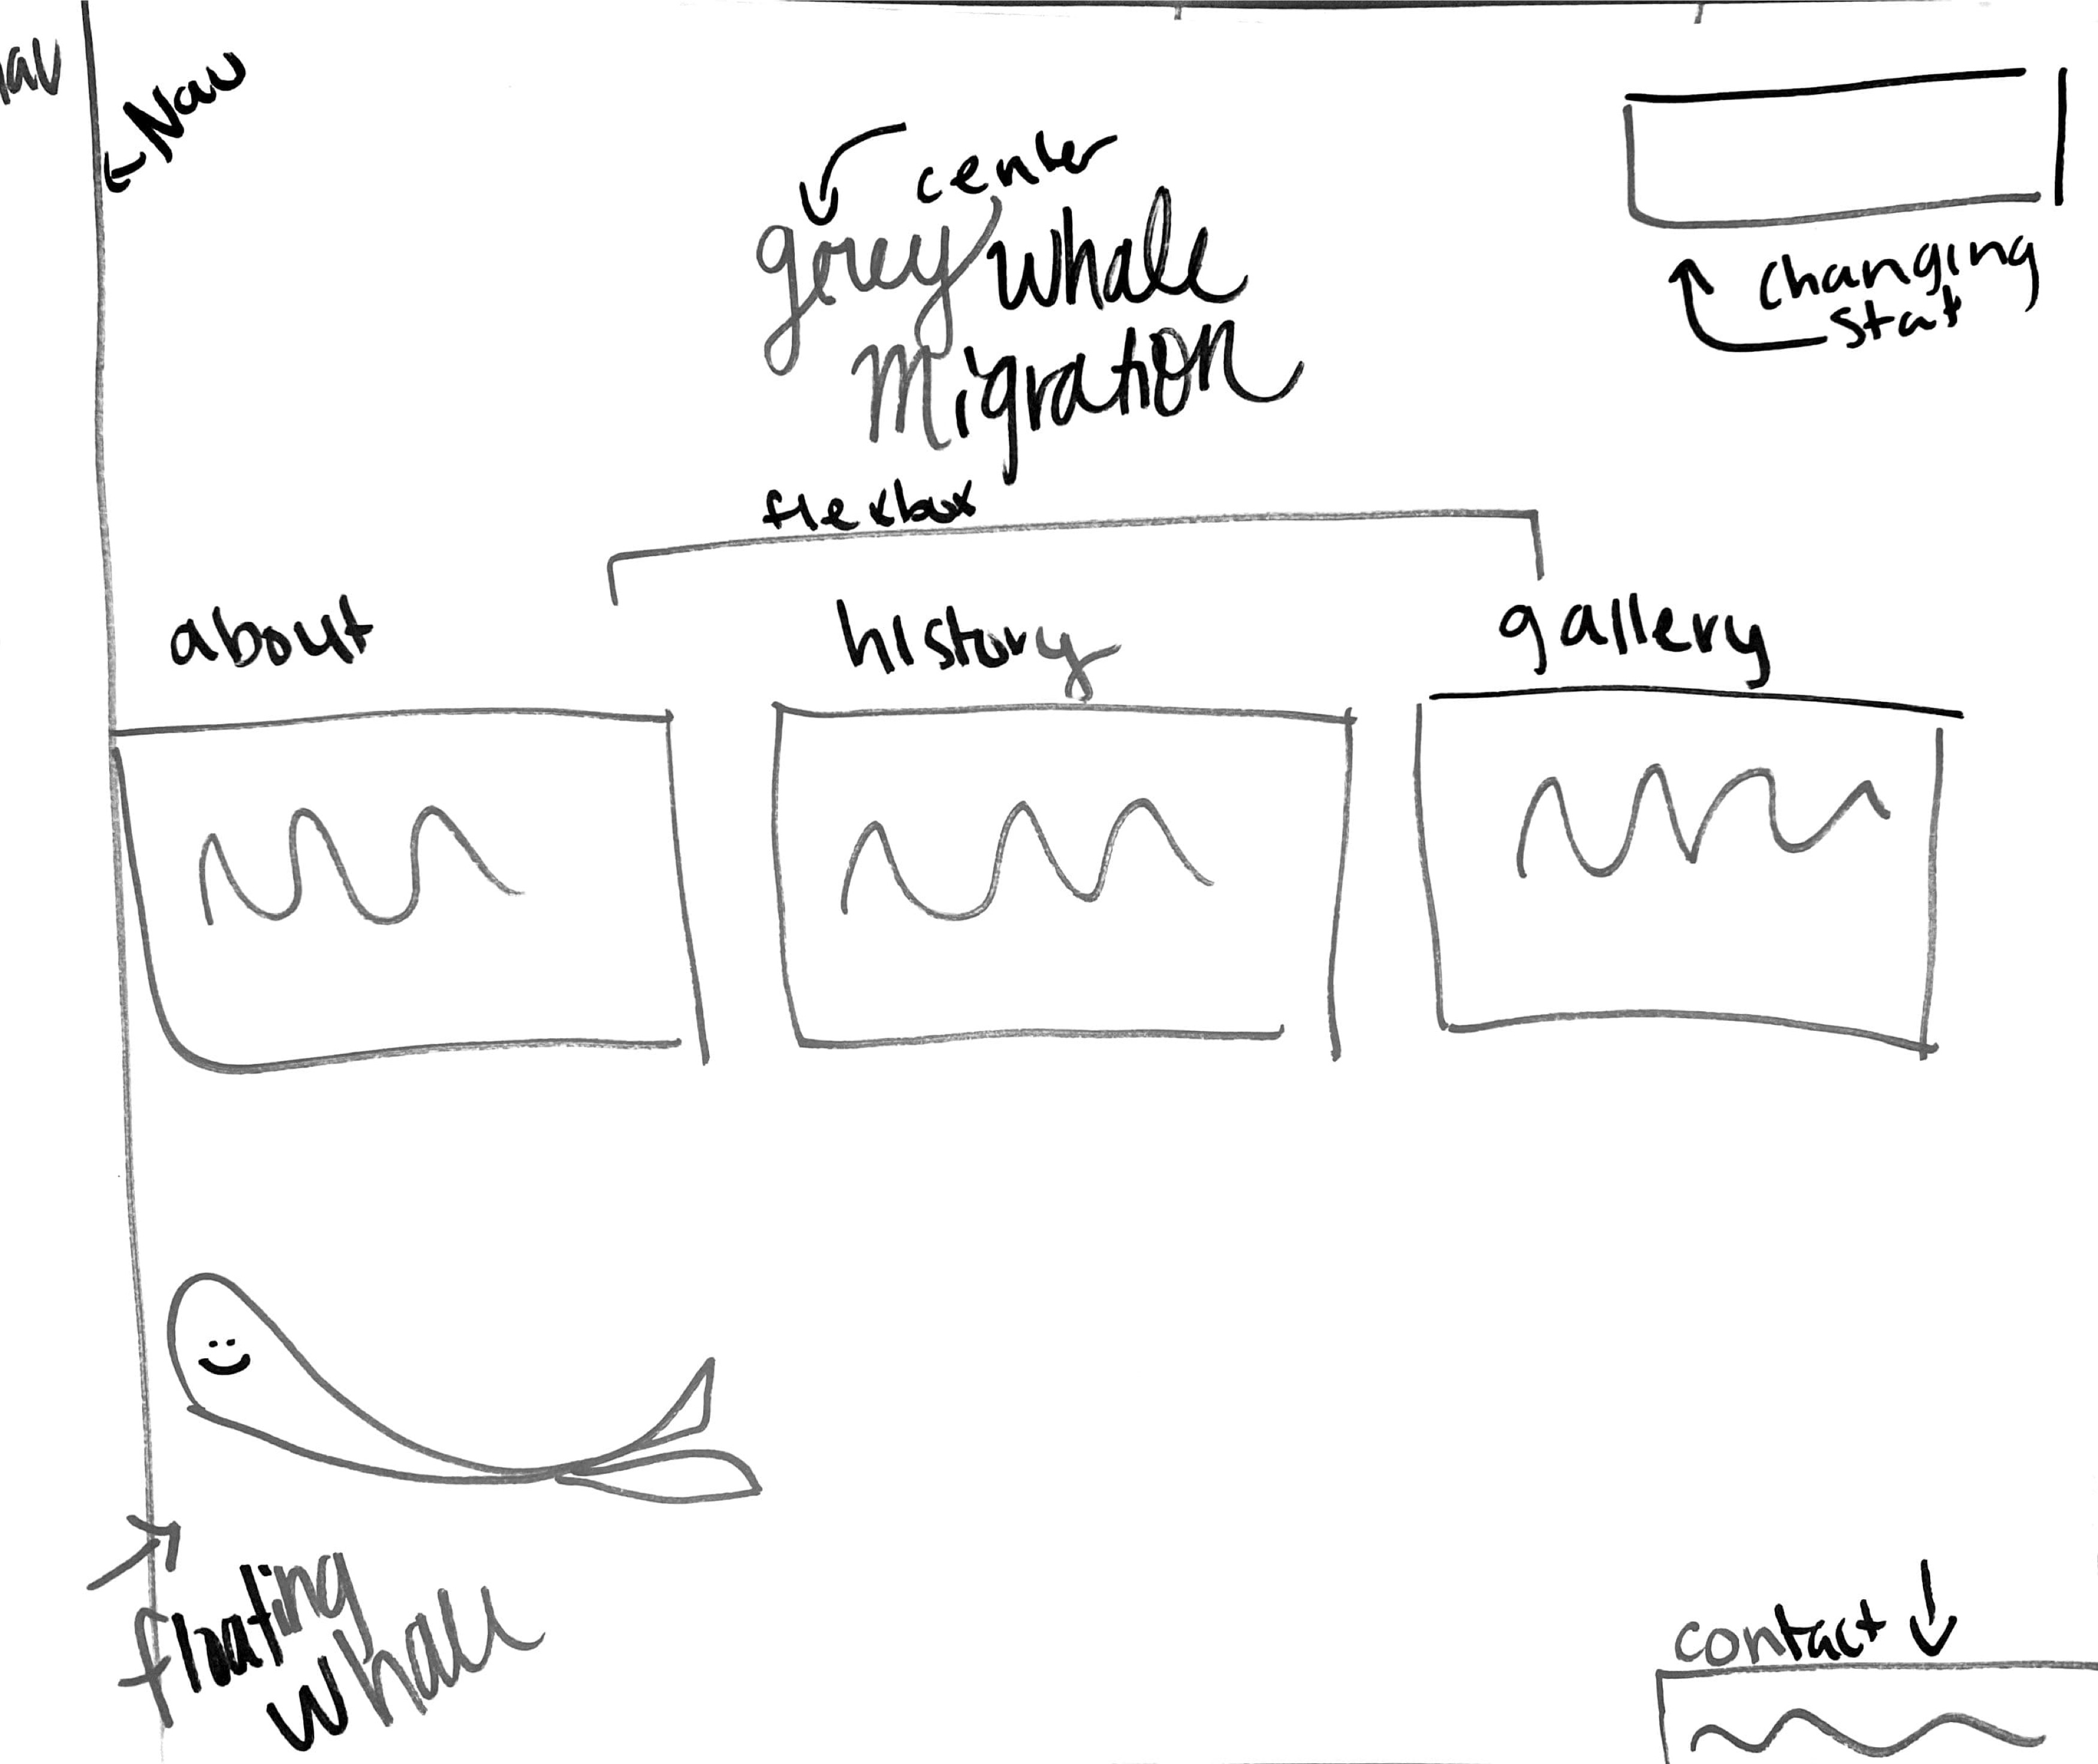 nav
←Nav
center
grey whale
migration
changing
stat
flexbox
about
history
gallery
floating
whale
contact ↓